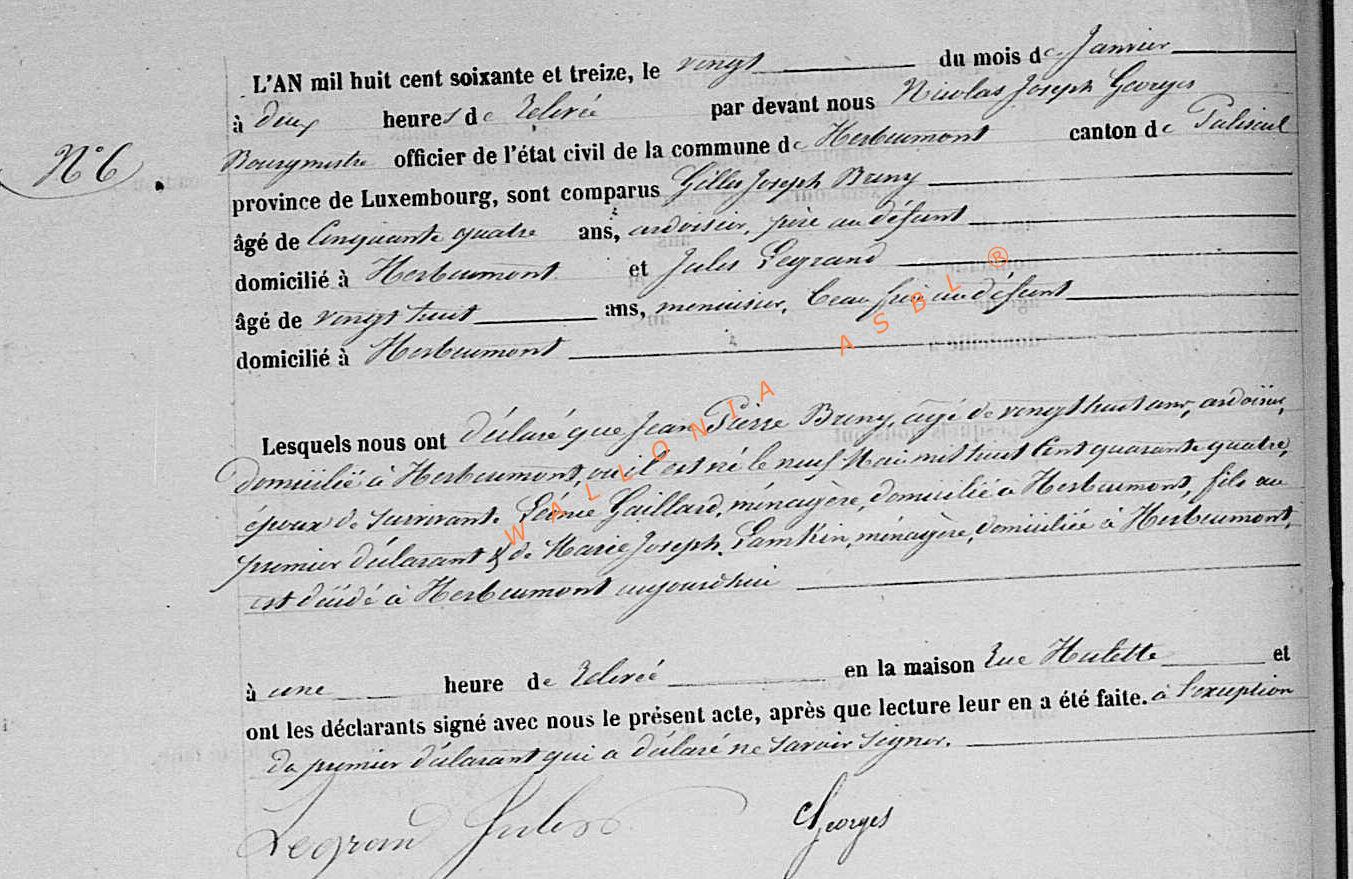 L'AN mil huit cent soixante et treize, le vingt du mois de Janvier
à deux heures de relevé par devant nous Nicolas Joseph Georges
N° 6. Bourgmestre officier de l'état civil de la commune de Herbeumont canton de Paliseul
province de Luxembourg, sont comparus Gilles Joseph Bruny
âgé de Cinquante quatre ans, ardoisier, père au défunt
domicilié à Herbeumont et Jules Legrand
âgé de vingt huit ans, menuisier, beau frère au défunt
domicilié à Herbeumont
Lesquels nous ont déclaré que Jean Pierre Bruny, agé de vingt huit ans, ardoisier,
domicilié à Herbeumont, où il est né le neuf Mai mil huit Cent quarante quatre,
époux de survivante Léonie Gaillard, ménagère, domiciliée à Herbeumont, fils au
premier déclarant & de Marie Joseph Lamkin, ménagère, domiciliée à Herbeumont,
est décédé à Herbeumont aujourd'hui
à une heure de relevée en la maison rue Hulette et
ont les déclarants signé avec nous le présent acte, après que lecture leur en a été faite. à l'exception
du premier déclarant qui a déclaré ne savoir signer.
Legrand Jules Georges
WALLONIA ASBL ®